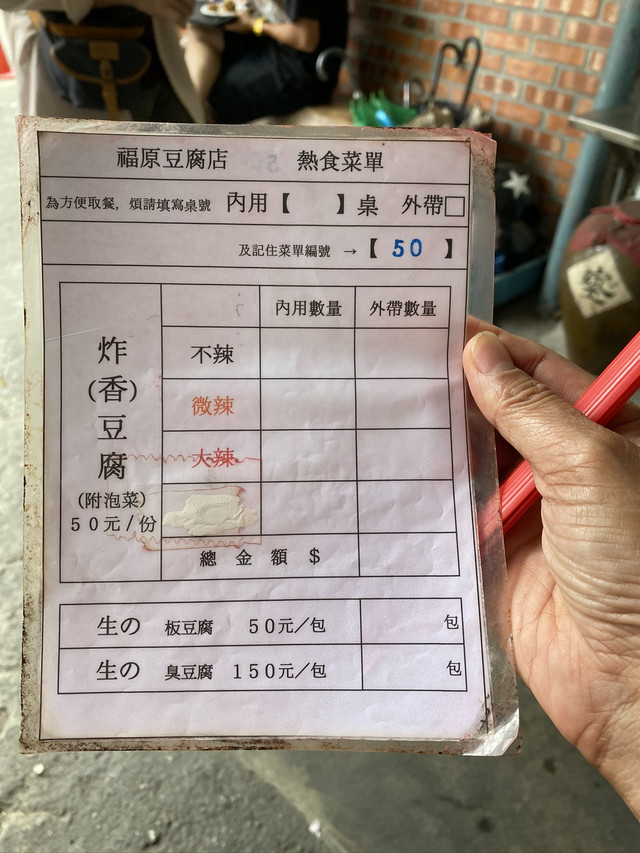 福原豆腐店 熱食菜單
為方便取餐, 煩請填寫桌號 內用【 】桌 外帶□
及記住菜單編號 →【 50 】
內用數量 外帶數量
炸(香)豆腐
(附泡菜)
50元/份
不辣
微辣
大辣
總金額 $
生の 板豆腐 50元/包 包
生の 臭豆腐 150元/包 包